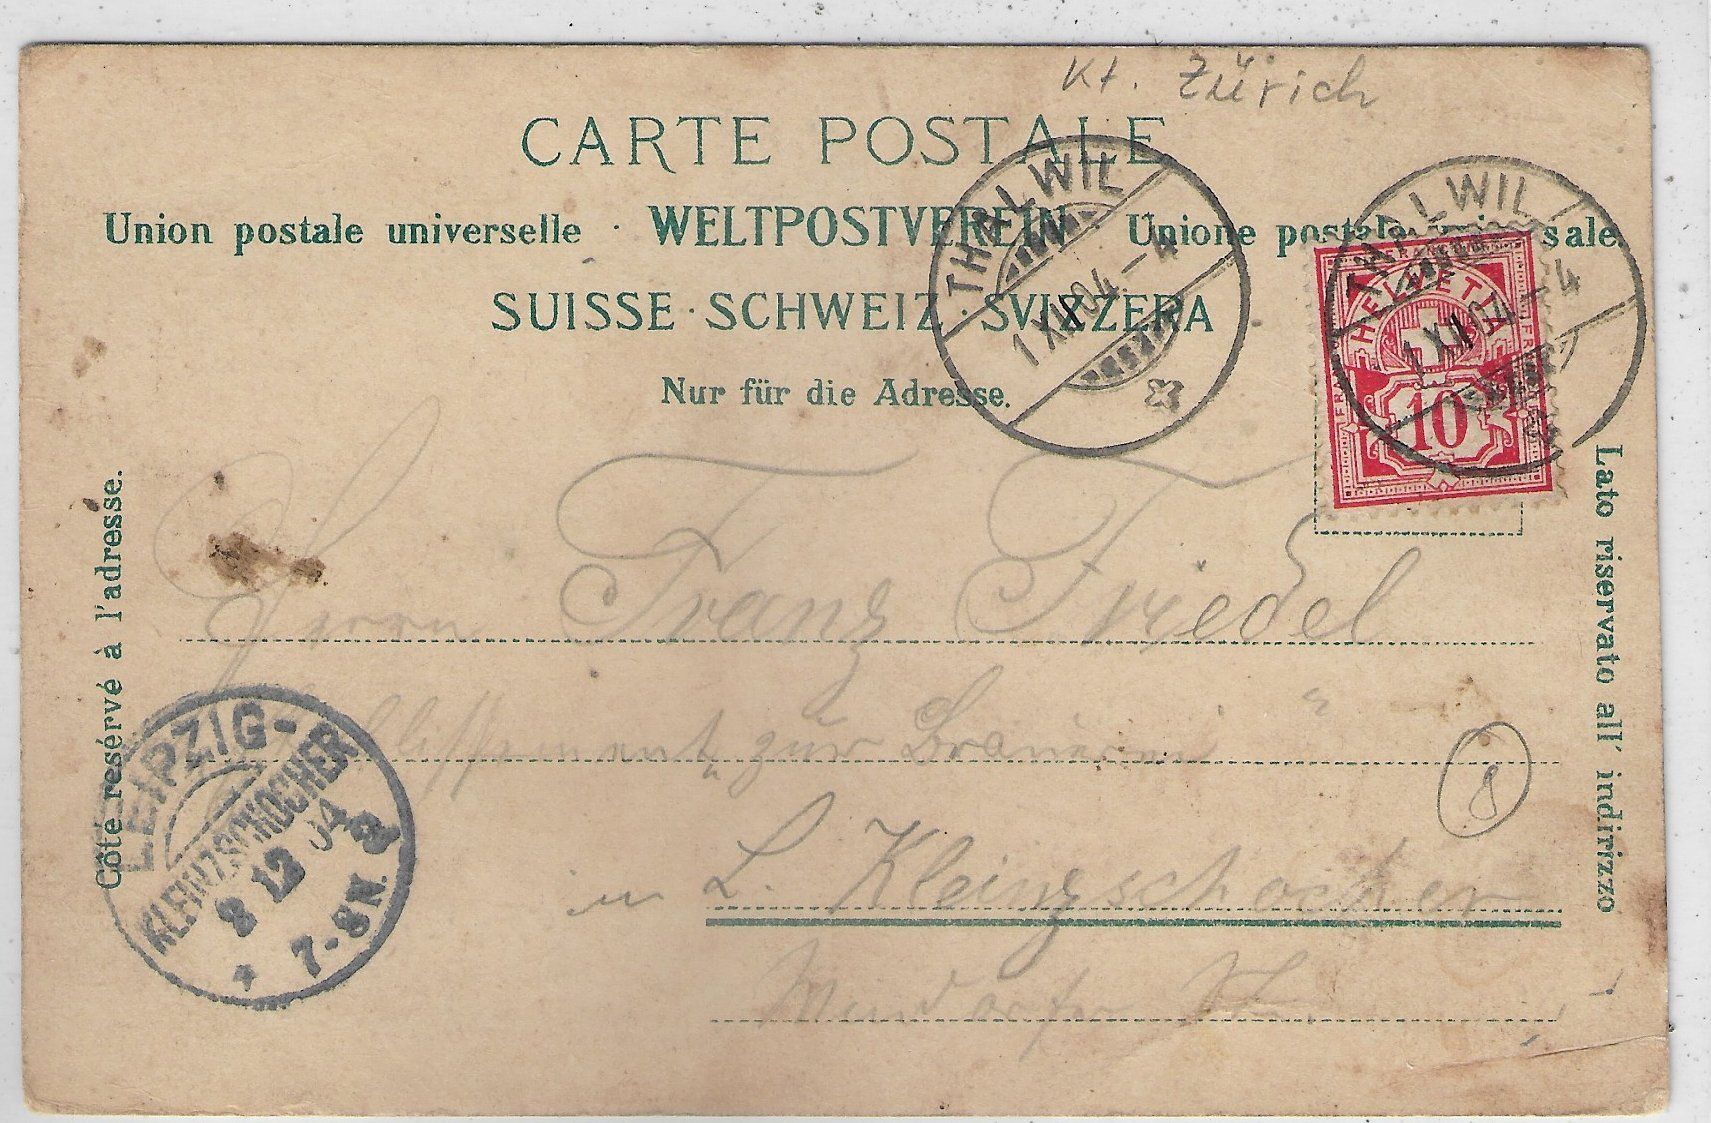 Kt. Zürich
CARTE POSTALE
Union postale universelle · WELTPOSTVEREIN · Unione postale universale.
SUISSE · SCHWEIZ · SVIZZERA
Nur für die Adresse.
Côte resérvé à l'adresse.
Lato riservato all' indirizzo
THALWIL
1 XII 04 – 4
THALWIL
1 XII 04 – 4
HELVETIA
FRANCO
10
Herrn Franz Friedel
zur Brauerei "
in L. Kleinzschocher
Windorfer
8
LEIPZIG-
KLEINZSCHOCHER
12 04
7-8 N. a